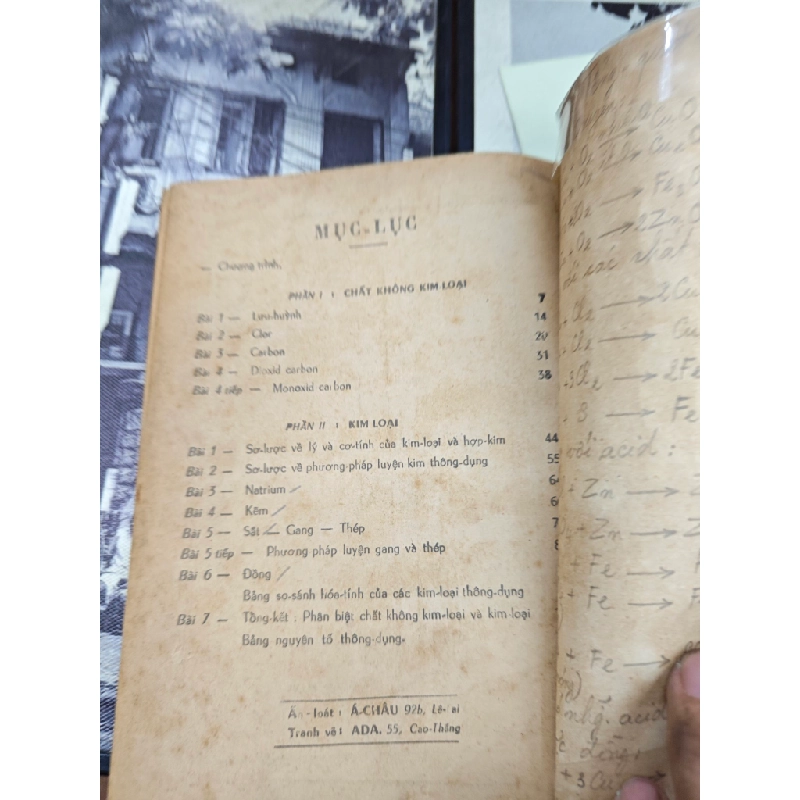 MỤC-LỤC
— Chương trình,
PHẦN I : CHẤT KHÔNG KIM LOẠI
Bài 1 — Lưu-huỳnh 7
Bài 2 — Clor 14
Bài 3 — Carbon 20
Bài 4 — Dioxid carbon 31
Bài 4 tiếp — Monoxid carbon 38
PHẦN II : KIM LOẠI
Bài 1 — Sơ-lược về lý và cơ-tính của kim-loại và hợp-kim 44
Bài 2 — Sơ-lược về phương-pháp luyện kim thông-dụng 55
Bài 3 — Natrium / 64
Bài 4 — Kẽm / 6
Bài 5 — Sắt / Gang — Thép 7
Bài 5 tiếp — Phương pháp luyện gang và thép 8
Bài 6 — Đồng /
Bảng so-sánh hóa-tính của các kim-loại thông-dụng
Bài 7 — Tổng-kết : Phân biệt chất không kim-loại và kim-loại
Bảng nguyên tố thông-dụng.
Ấn-loát : Á-CHÂU 92b, Lê-lai
Tranh vẽ : ADA, 55, Cao-Thắng
CuO
→ 2Zn
các chất
→ 2Cu
→ Cu
→ 2Fe
3 → Fe
với acid :
+ Zn →
+ Zn →
+ Fe →
+ Fe → F
+ Fe →
acid